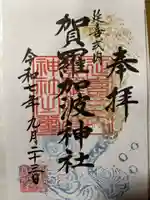 奉拝
延喜式内
賀羅加波神社
令和七年九月二十二日